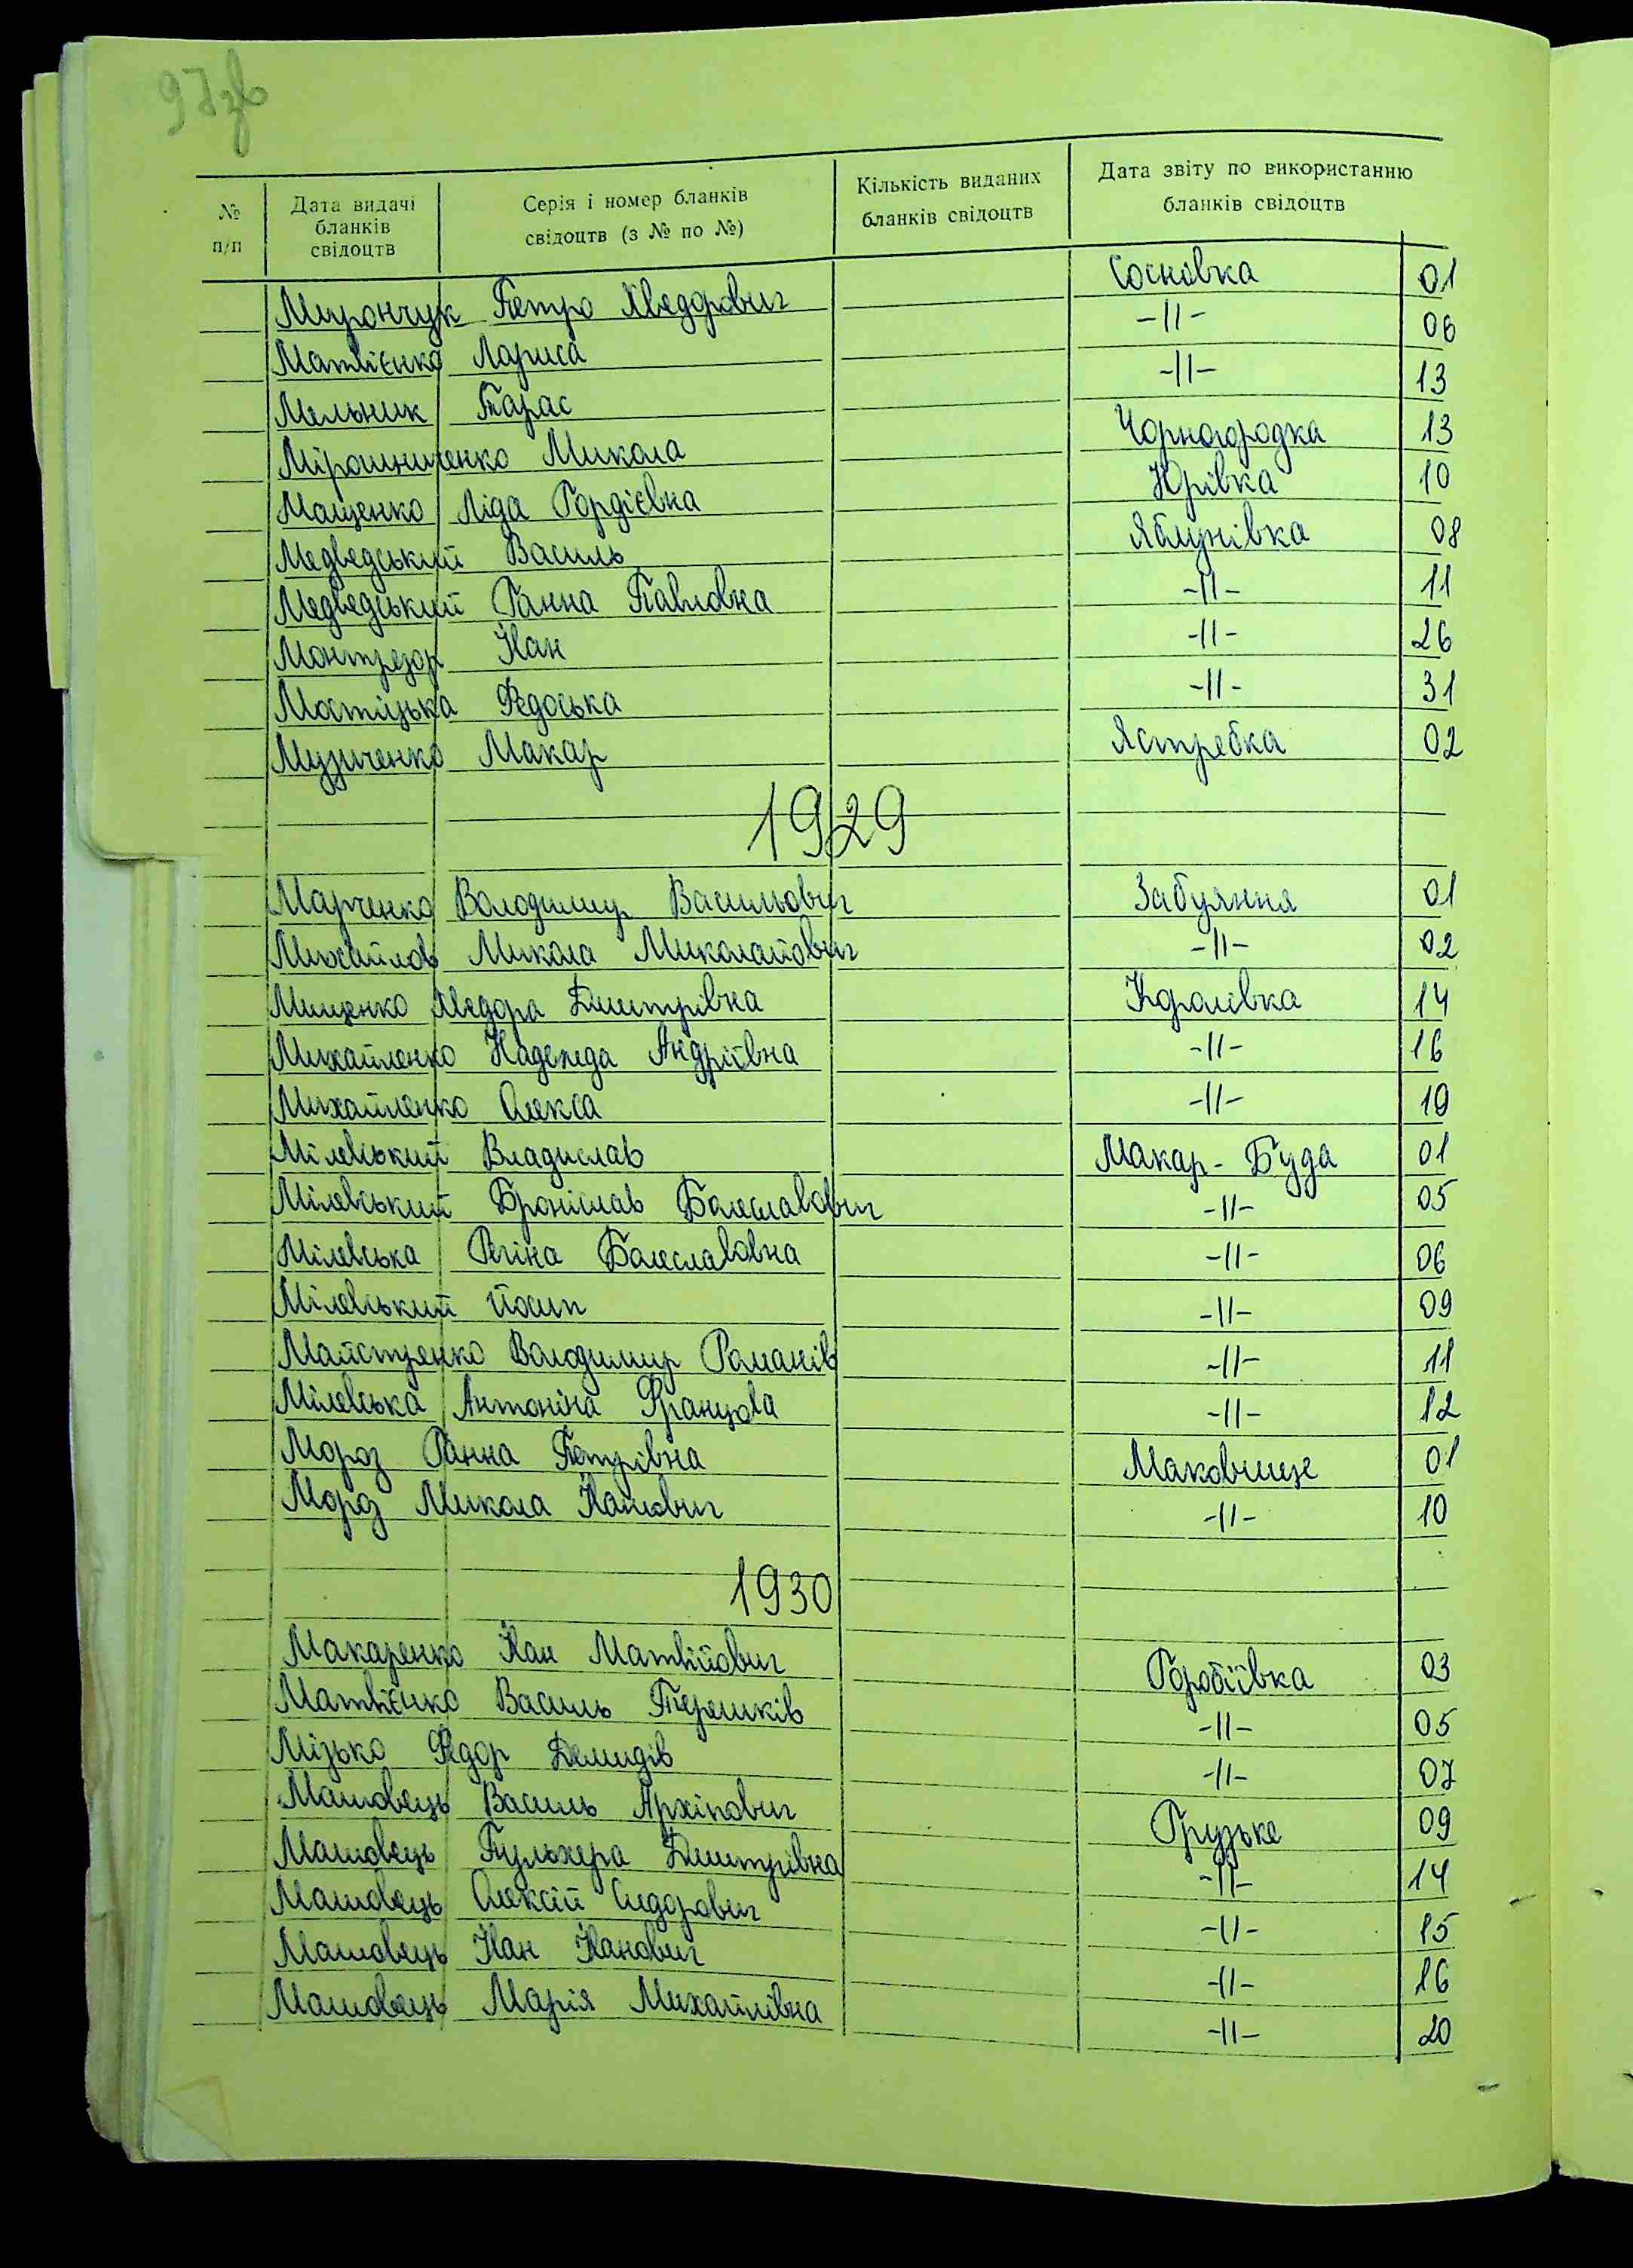 97зв
№ п/п Дата видачі бланків свідоцтв Серія і номер бланків свідоцтв (з № по №) Кількість виданих бланків свідоцтв Дата звіту по використанню бланків свідоцтв
Мирончук Петро Хведорович Соснівка 01
Матвієнко Лариса -||- 06
Мельник Тарас -||- 13
Мірошниченко Микола Чорногородка 13
Мащенко Ліда Гордієвна Юрівка 10
Медведський Василь Яблунівка 08
Медведський Ганна Павловна -||- 11
Монтрезор Іван -||- 26
Мостіцька Федоська -||- 31
Музиченко Макар Ястребка 02
1929
Марченко Володимир Васильович Забуяння 01
Михайлов Микола Миколайович -||- 02
Мищенко Хведора Дмитрівна Королівка 14
Михайленко Надежда Андріївна -||- 16
Михайленко Олекса -||- 19
Мілевський Владислав Макар-Буда 01
Мілевський Броніслав Болеславович -||- 05
Мілевська Регіна Болеславовна -||- 06
Мілевський Йосип -||- 09
Майстренко Володимир Романів -||- 11
Мілевська Антоніна Францова -||- 12
Мороз Ганна Петрівна Маковище 01
Мороз Микола Іванович -||- 10
1930
Макаренко Іван Матвійович Горобіївка 03
Матвієнко Василь Терешків -||- 05
Мізько Федор Демидів -||- 07
Машовець Василь Архіпович Грузьке 09
Машовець Пульхера Дмитрівна -||- 14
Машовець Олексій Сидорович -||- 15
Машовець Іван Іванович -||- 16
Машовець Марія Михайлівна -||- 20